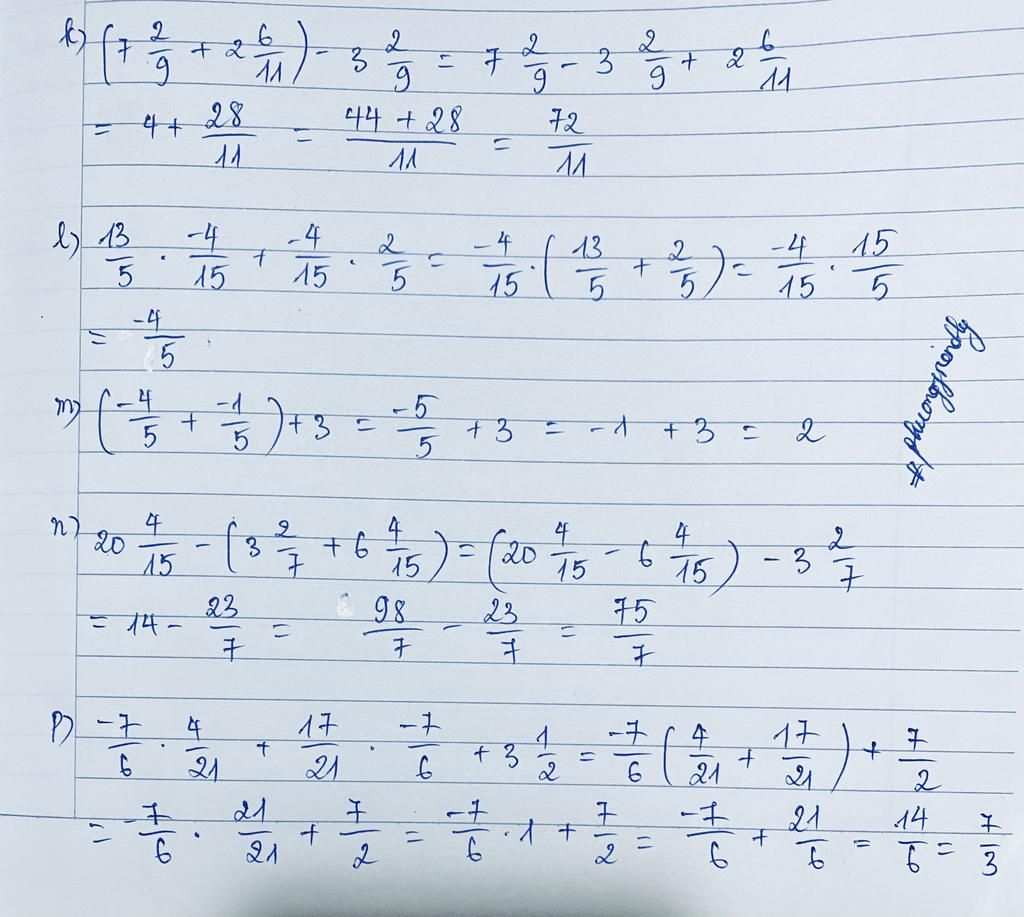 k) (7 2/9 + 2 6/11) - 3 2/9 = 7 2/9 - 3 2/9 + 2 6/11
= 4 + 28/11 = (44 + 28)/11 = 72/11
l) 13/5 . -4/15 + -4/15 . 2/5 = -4/15 . (13/5 + 2/5) = -4/15 . 15/5
= -4/5
m) (-4/5 + -1/5) + 3 = -5/5 + 3 = -1 + 3 = 2
n) 20 4/15 - (3 2/7 + 6 4/15) = (20 4/15 - 6 4/15) - 3 2/7
= 14 - 23/7 = 98/7 - 23/7 = 75/7
p) -7/6 . 4/21 + 17/21 . -7/6 + 3 1/2 = -7/6 (4/21 + 17/21) + 7/2
= -7/6 . 21/21 + 7/2 = -7/6 . 1 + 7/2 = -7/6 + 21/6 = 14/6 = 7/3